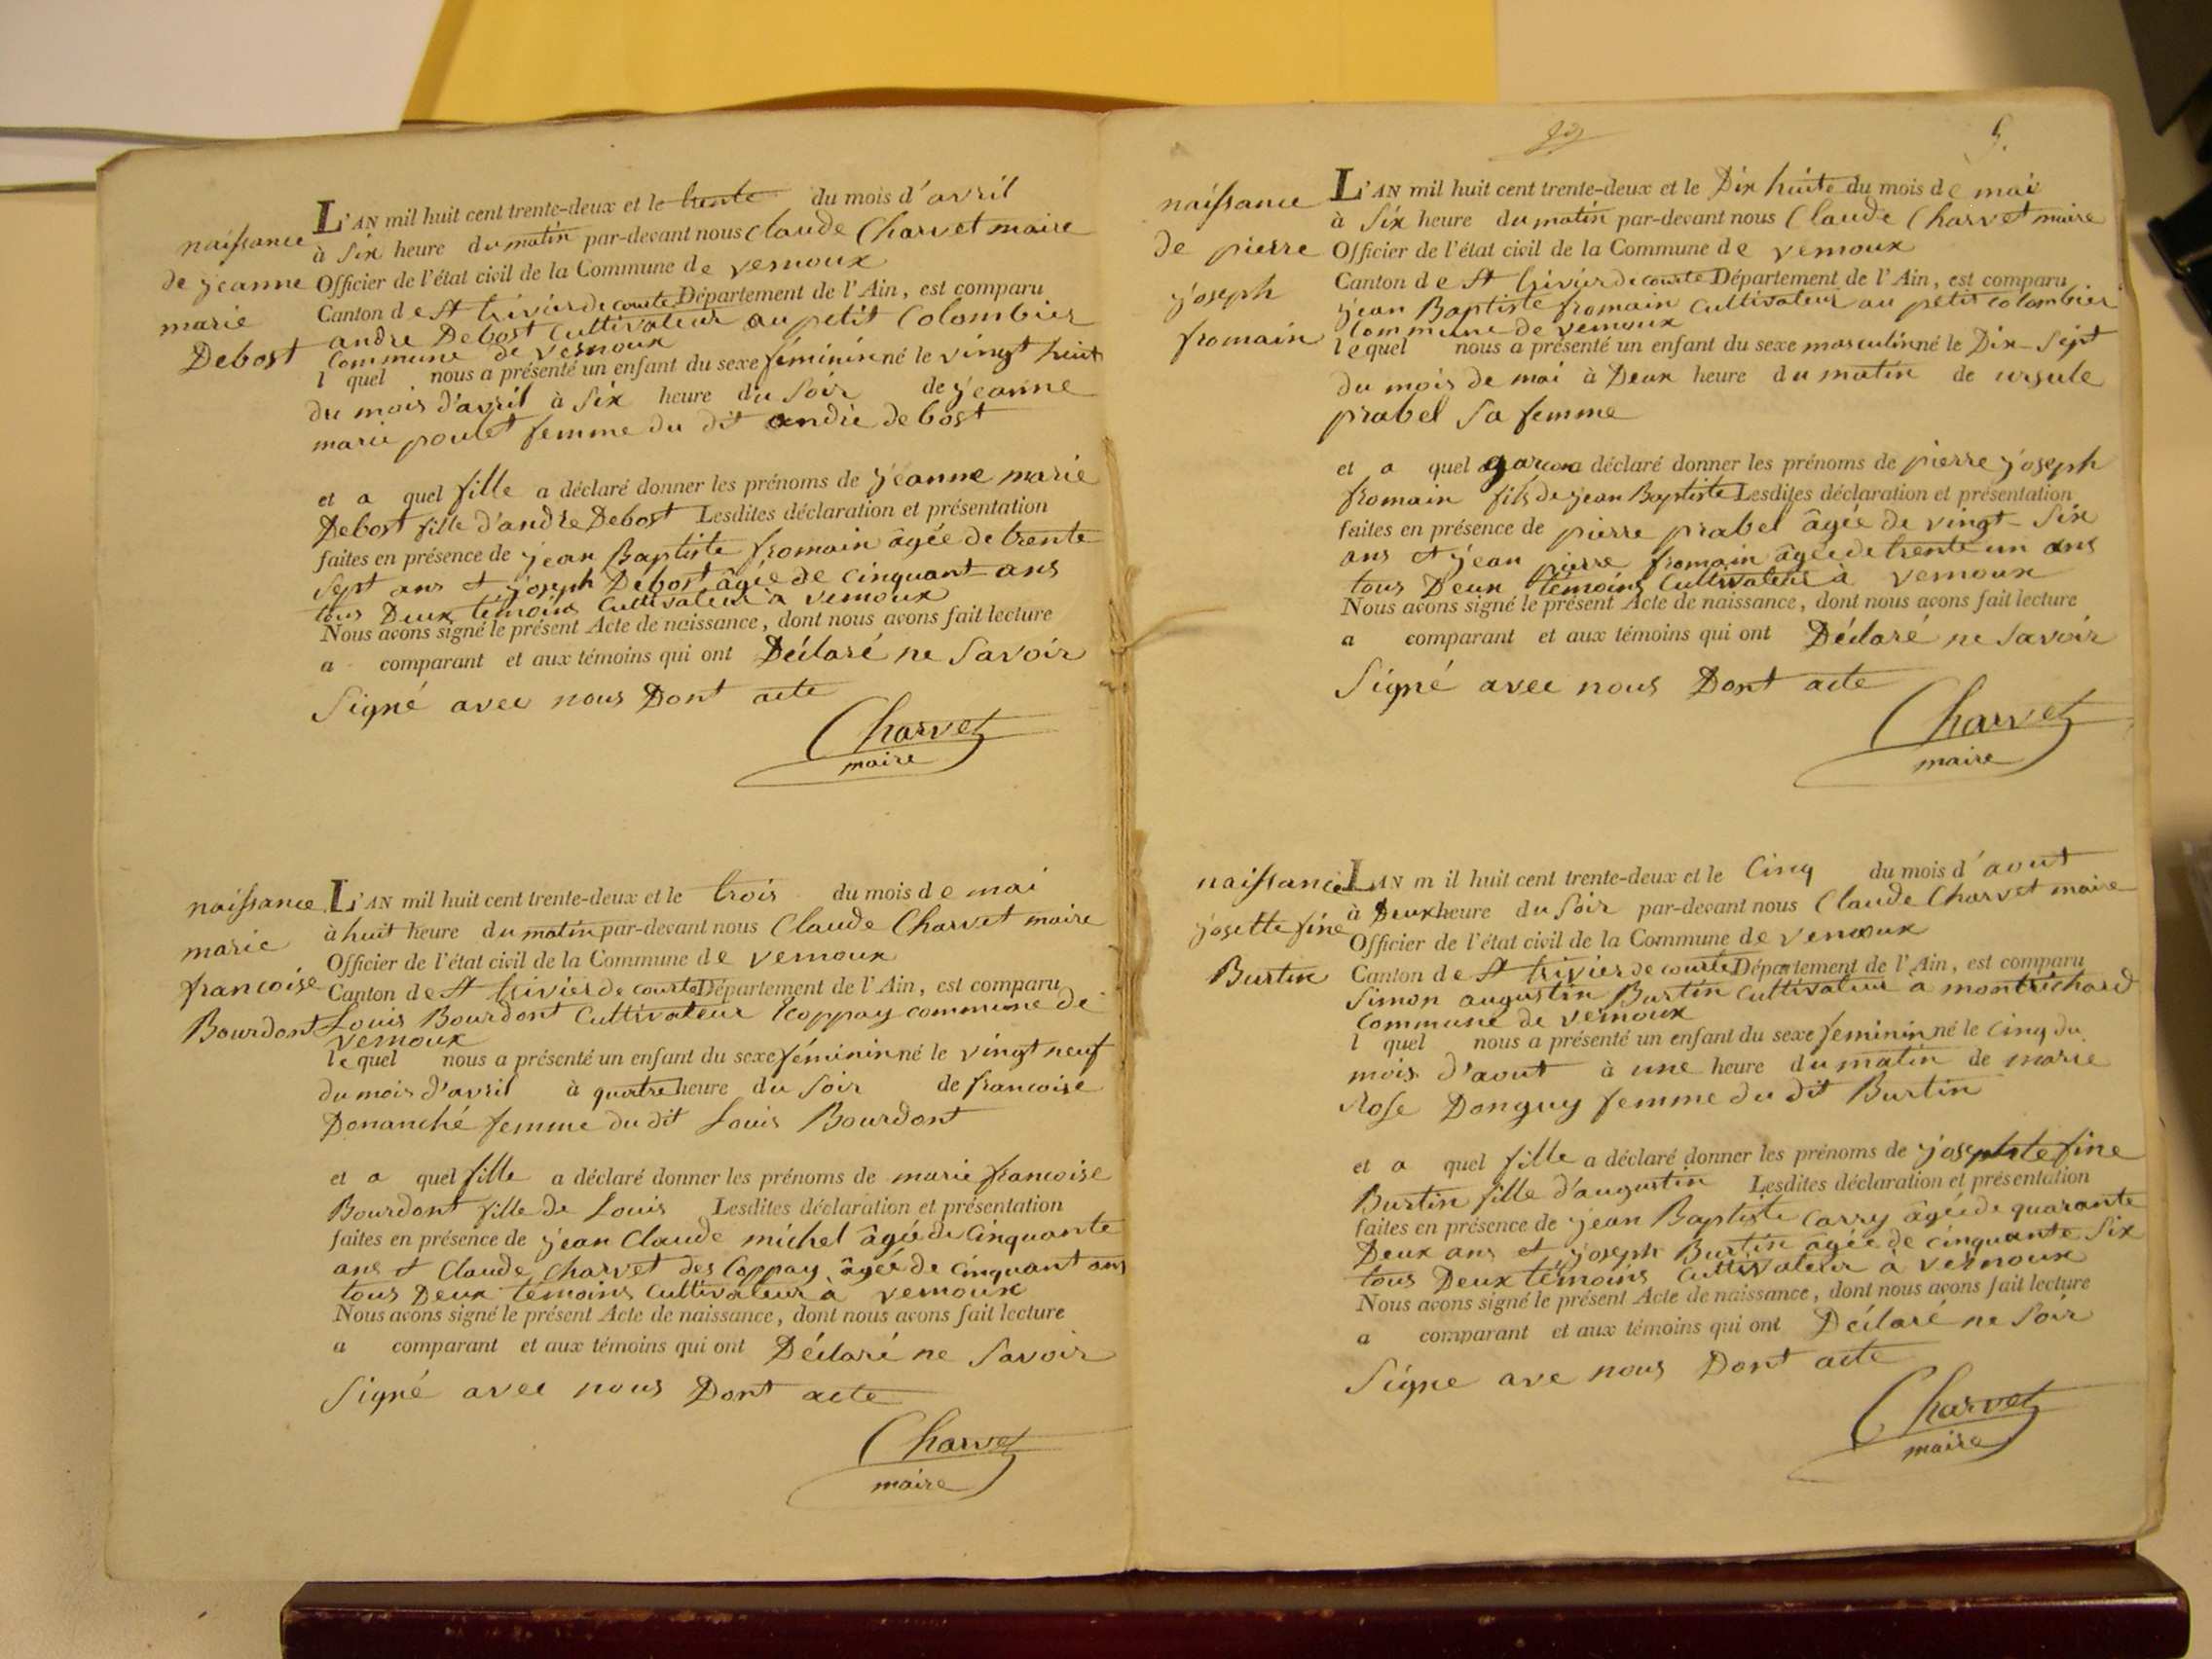 naissance
de jeanne
marie
Debost
L'AN mil huit cent trente-deux et le trente du mois d'avril
à six heure du matin par-devant nous Claude Charvet maire
Officier de l'état civil de la Commune de vernoux
Canton de St trivier de courte Département de l'Ain, est comparu
andre Debost Cultivateur au petit Colombier
Commune de vernoux
l quel nous a présenté un enfant du sexe féminin né le vingt huit
du mois d'avril à six heure du soir de jeanne
marie poulet femme du dit andré debost
et a quel fille a déclaré donner les prénoms de jéanne marie
Debost fille d'andre Debost Lesdites déclaration et présentation
faites en présence de jean Baptiste fromain âgée de trente
sept ans et joseph Debost âgée de cinquant ans
tous Deux témoins Cultivateur à vernoux
Nous avons signé le présent Acte de naissance, dont nous avons fait lecture
a comparant et aux témoins qui ont Déclaré ne savoir
Signé avec nous Dont acte
Charvet
maire
naissance
marie
francoise
Bourdont
L'AN mil huit cent trente-deux et le trois du mois de mai
à huit heure du matin par-devant nous Claude Charvet maire
Officier de l'état civil de la Commune de vernoux
Canton de St trivier de courte Département de l'Ain, est comparu
Louis Bourdont Cultivateur Coppay commune de
vernoux
lequel nous a présenté un enfant du sexe féminin né le vingt neuf
du mois d'avril à quatre heure du soir de francoise
Donanché femme du dit Louis Bourdont
et a quel fille a déclaré donner les prénoms de marie francoise
Bourdont fille de Louis Lesdites déclaration et présentation
faites en présence de jean Claude michel âgée de Cinquante
ans et Claude Charvet des Coppay âgée de cinquant ans
tous Deux témoins Cultivateur à vernoux
Nous avons signé le présent Acte de naissance, dont nous avons fait lecture
a comparant et aux témoins qui ont Déclaré ne savoir
Signé avec nous Dont acte
Charvet
maire
5.
naissance
de pierre
joseph
fromain
L'AN mil huit cent trente-deux et le Dix huite du mois de mai
à six heure du matin par-devant nous Claude Charvet maire
Officier de l'état civil de la Commune de vernoux
Canton de St trivier de courte Département de l'Ain, est comparu
jean Baptiste fromain Cultivateur au petit colombier
Commune de vernoux
lequel nous a présenté un enfant du sexe masculin né le Dix-sept
du mois de mai à Deux heure du matin de ursule
prabel sa femme
et a quel garcon a déclaré donner les prénoms de pierre joseph
fromain fils de jean Baptiste Lesdites déclaration et présentation
faites en présence de pierre prabel âgée de vingt-six
ans et jean pierre fromain âgée de trente un ans
tous Deux témoins Cultivateur à vernoux
Nous avons signé le présent Acte de naissance, dont nous avons fait lecture
a comparant et aux témoins qui ont Déclaré ne savoir
Signé avec nous Dont acte
Charvet
maire
naissance
josette fine
Burtin
L'AN mil huit cent trente-deux et le Cinq du mois d'aout
à Deux heure du soir par-devant nous Claude Charvet maire
Officier de l'état civil de la Commune de vernoux
Canton de St trivier de courte Département de l'Ain, est comparu
Simon augustin Burtin Cultivateur a montrichard
Commune de vernoux
l quel nous a présenté un enfant du sexe feminin né le cinq du
mois d'aout à une heure du matin de marie
Rose Donguy femme du dit Burtin
et a quel fille a déclaré donner les prénoms de josephte fine
Burtin fille d'augustin Lesdites déclaration et présentation
faites en présence de jean Baptiste Carry âgée de quarante
Deux ans et joseph Burtin âgée de cinquante six
tous Deux témoins Cultivateur à vernoux
Nous avons signé le présent Acte de naissance, dont nous avons fait lecture
a comparant et aux témoins qui ont Déclaré ne soir
Signe ave nous Dont acte
Charvet
maire